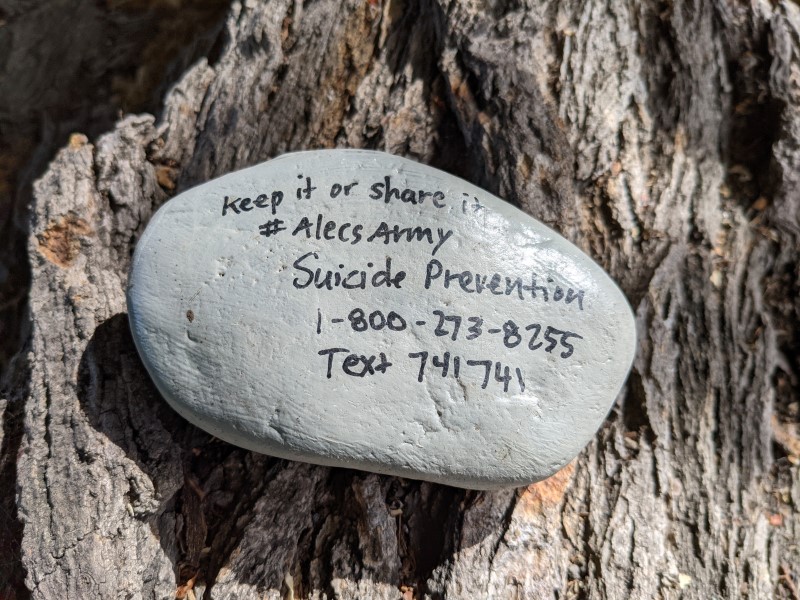 Keep it or share it
# Alecs Army
Suicide Prevention
1-800-273-8255
Text 741741